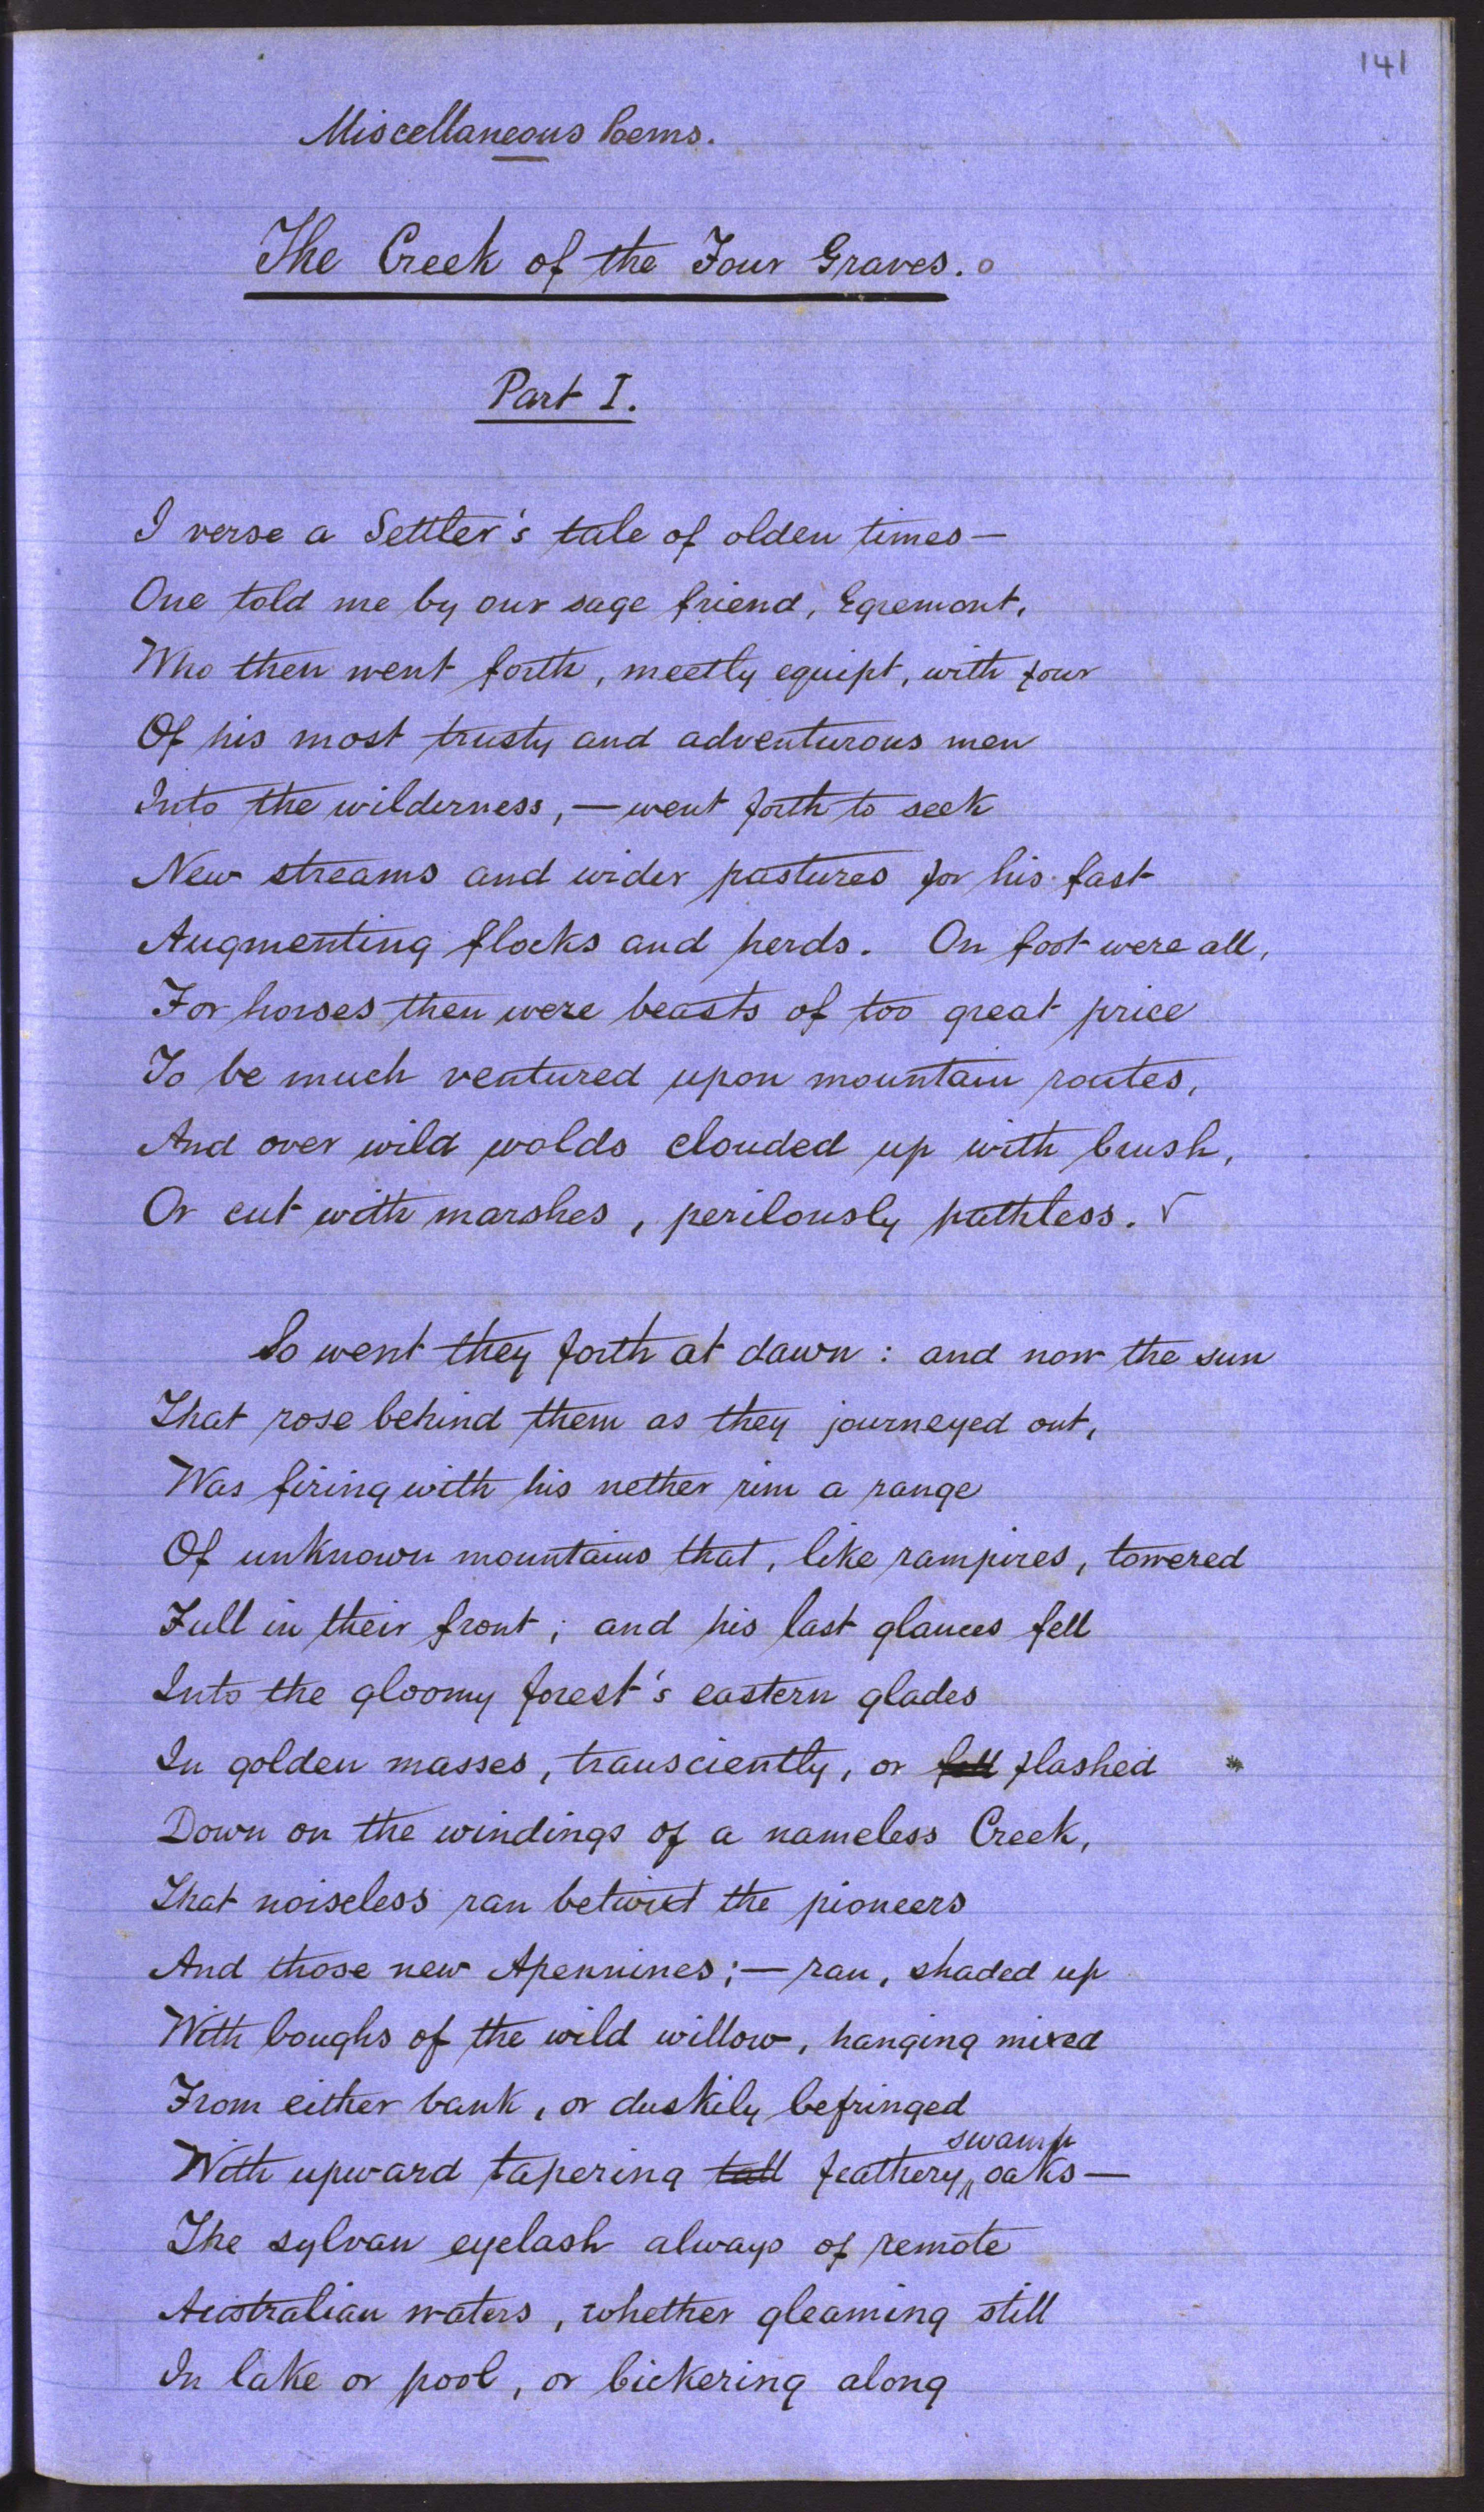 141
Miscellaneous Poems.
The Creek of the Four Graves.
Part I.
I verse a Settler's tale of olden times—
One told me by our sage friend, Egremont,
Who then went forth, meetly equipt, with four
Of his most trusty and adventurous men
Into the wilderness,—went forth to seek
New streams and wider pastures for his fast
Augmenting flocks and herds. On foot were all,
For horses then were beasts of too great price
To be much ventured upon mountain routes,
And over wild wolds clouded up with brush,
Or cut with marshes, perilously pathless. √
So went they forth at dawn: and now the sun
That rose behind them as they journeyed out,
Was firing with his nether rim a range
Of unknown mountains that, like rampires, towered
Full in their front; and his last glances fell
Into the gloomy forest's eastern glades
In golden masses, transciently, or fell flashed *
Down on the windings of a nameless Creek,
That noiseless ran betwixt the pioneers
And those new Apennines;—ran, shaded up
With boughs of the wild willow, hanging mixed
From either bank, or duskily befringed
With upward tapering tall feathery swamp oaks—
The sylvan eyelash always of remote
Australian waters, whether gleaming still
In lake or pool, or bickering along